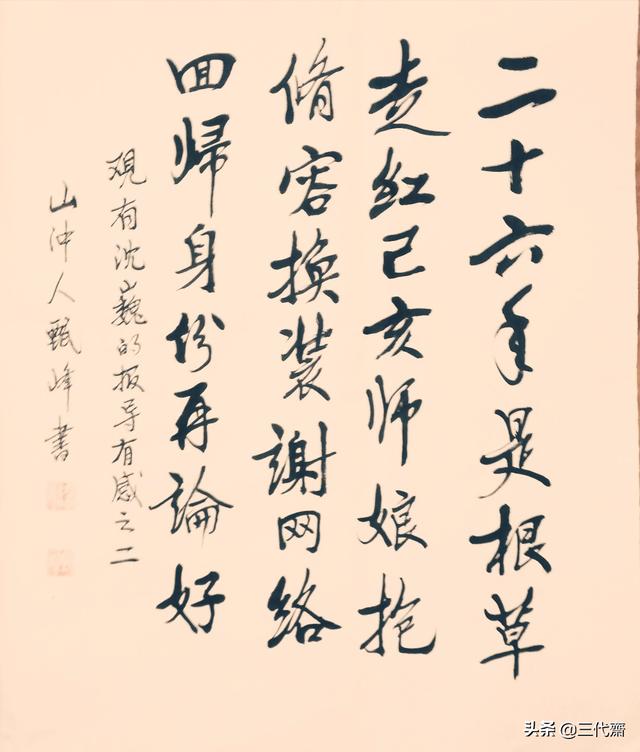 二十六年是根草
走红己亥师娘抱
脩容换装謝网络
回歸身份再論好
观有沈巍的报导有感之二
山沖人甄峰書
头条 @三代齋